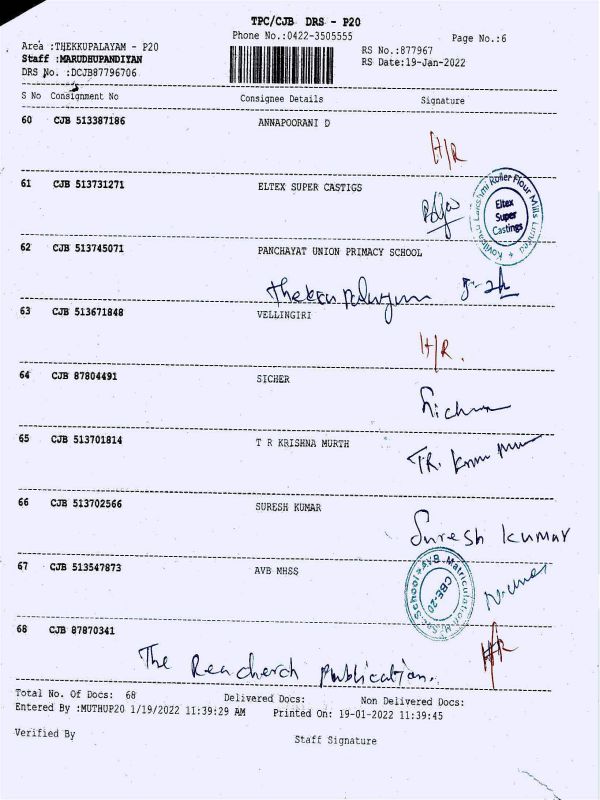 TPC/CJB DRS - P20
Phone No.:0422-3505555
Page No.:6
Area :THEKKUPALAYAM - P20
RS No.:877967
Staff :MARUDHUPANDIYAN
RS Date:19-Jan-2022
DRS No. :DCJB87796706
S No Consignment No Consignee Details Signature
60 CJB 513387186 ANNAPOORANI D
H/R
61 CJB 513731271 ELTEX SUPER CASTIGS
Kovilpatti Lakshmi Roller Flour Mills Limited
Eltex
Super
Castings
62 CJB 513745071 PANCHAYAT UNION PRIMACY SCHOOL
63 CJB 513671848 VELLINGIRI
H/R.
64 CJB 87804491 SICHER
65 CJB 513701814 T R KRISHNA MURTH
TR.
66 CJB 513702566 SURESH KUMAR
Suresh kumar
67 CJB 513547873 AVB MHSS
A.V.B. Matriculation Hr. Sec. School
CBE-20
68 CJB 87870341
H/R
The Reacherch publication.
Total No. Of Docs: 68 Delivered Docs: Non Delivered Docs:
Entered By :MUTHUP20 1/19/2022 11:39:29 AM Printed On: 19-01-2022 11:39:45
Verified By Staff Signature